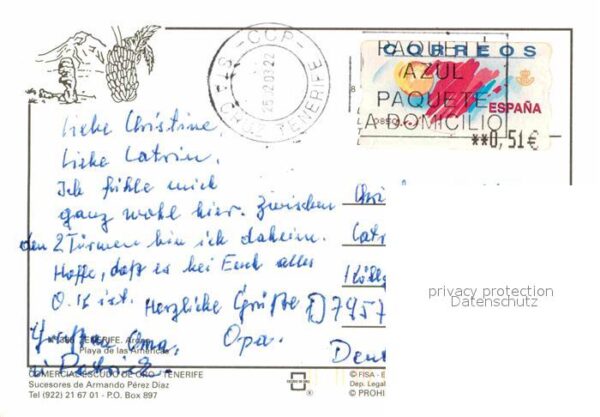 CORREOS
PAQUETE
AZUL
PAQUETE
A DOMICILIO
ESPAÑA
**0,51€
STA-CCP-
CRUZ TENERIFE
Liebe Christine,
Liebe Catrin.
Ich fühle mich
ganz wohl hier. Zwischen
den 2 Türmen bin ich daheim.
Hoffe, daß es bei Euch alles
O.K ist. Herzliche Grüße
Oma,
Opa.
u Patrick
Catr
D 7957
privacy protection
Datenschutz
TENERIFE.
Playa de las Américas
COMERCIAL ESCUDO DE ORO - TENERIFE
Sucesores de Armando Pérez Díaz
Tel (922) 21 67 01 - P.O. Box 897
© FISA - E
Dep. Legal
© PROHI